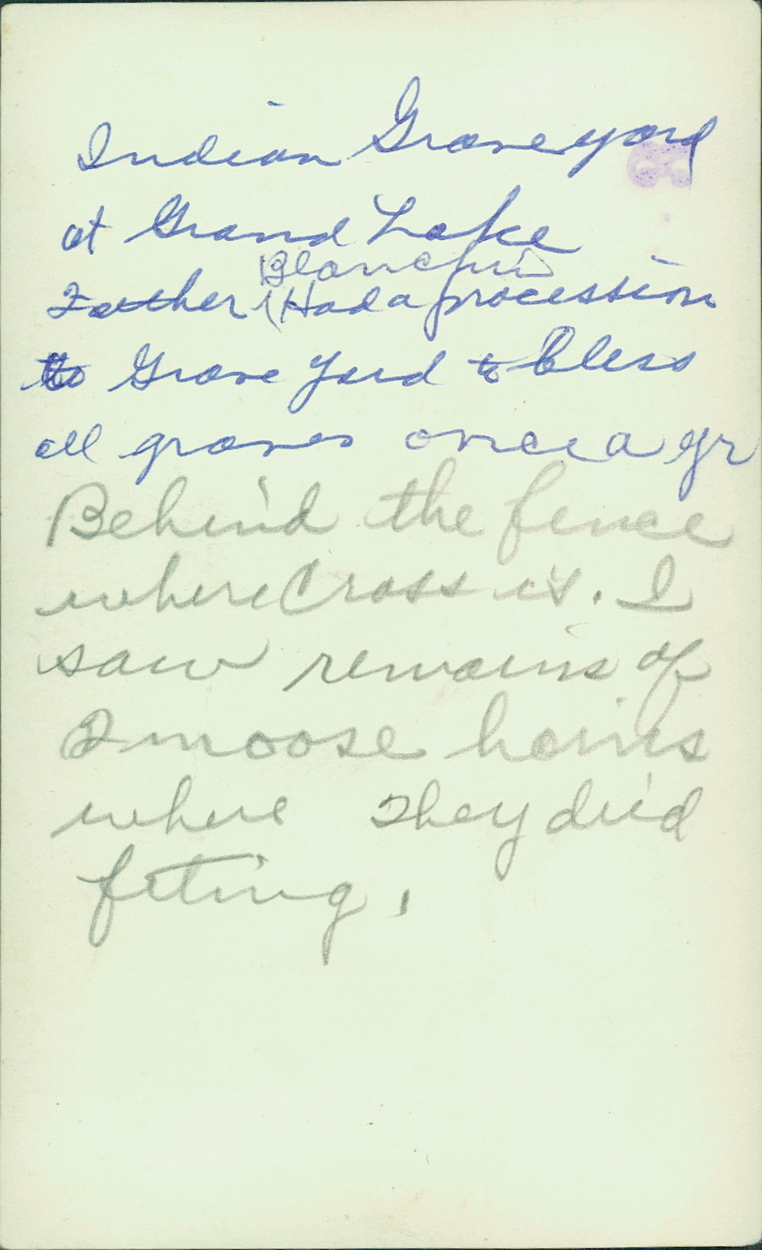 Indian Graveyard
at Grand Lake
Blanchin
Father (Had a procession
to Grave Yard to bless
all graves once a yr
Behind the fence
where Cross is. I
saw remains of
2 moose horns
where they died
fiting.